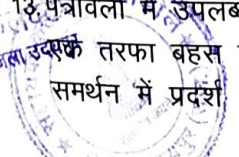 13. पत्रावली में उपलब
एक तरफा बहस
समर्थन में प्रदर्श